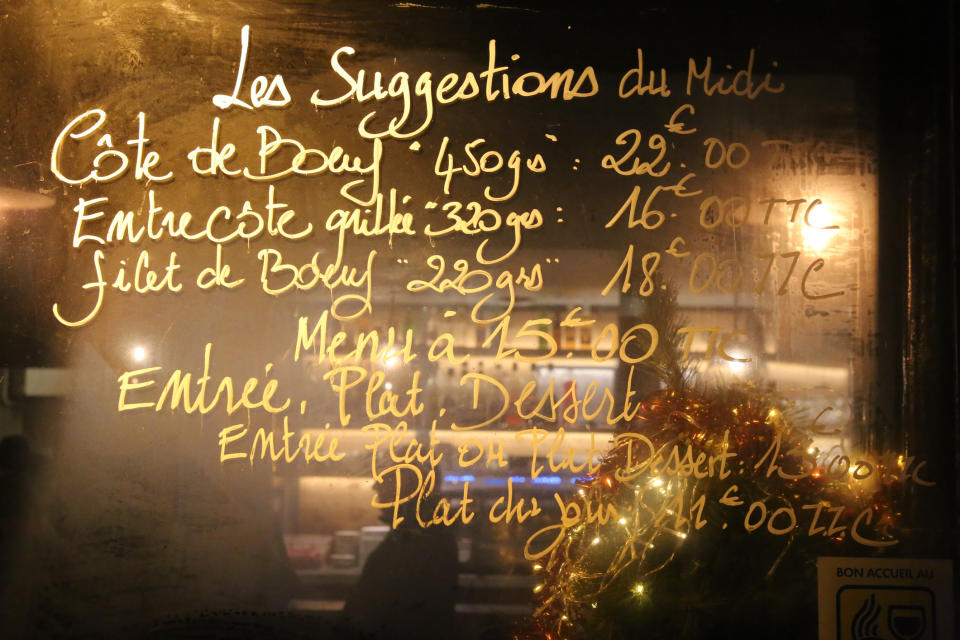 Les Suggestions du Midi
Côte de Boeuf "450grs": 22€.00 TTC
Entrecôte grillée "320grs: 16€.00 TTC
filet de Boeuf "220grs" 18€.00 TTC
Menu à 15€.00 TTC
Entrée, Plat, Dessert
Entrée Plat ou Plat Dessert: 13€.00 TTC
Plat du jour 11€.00 TTC
BON ACCUEIL AU